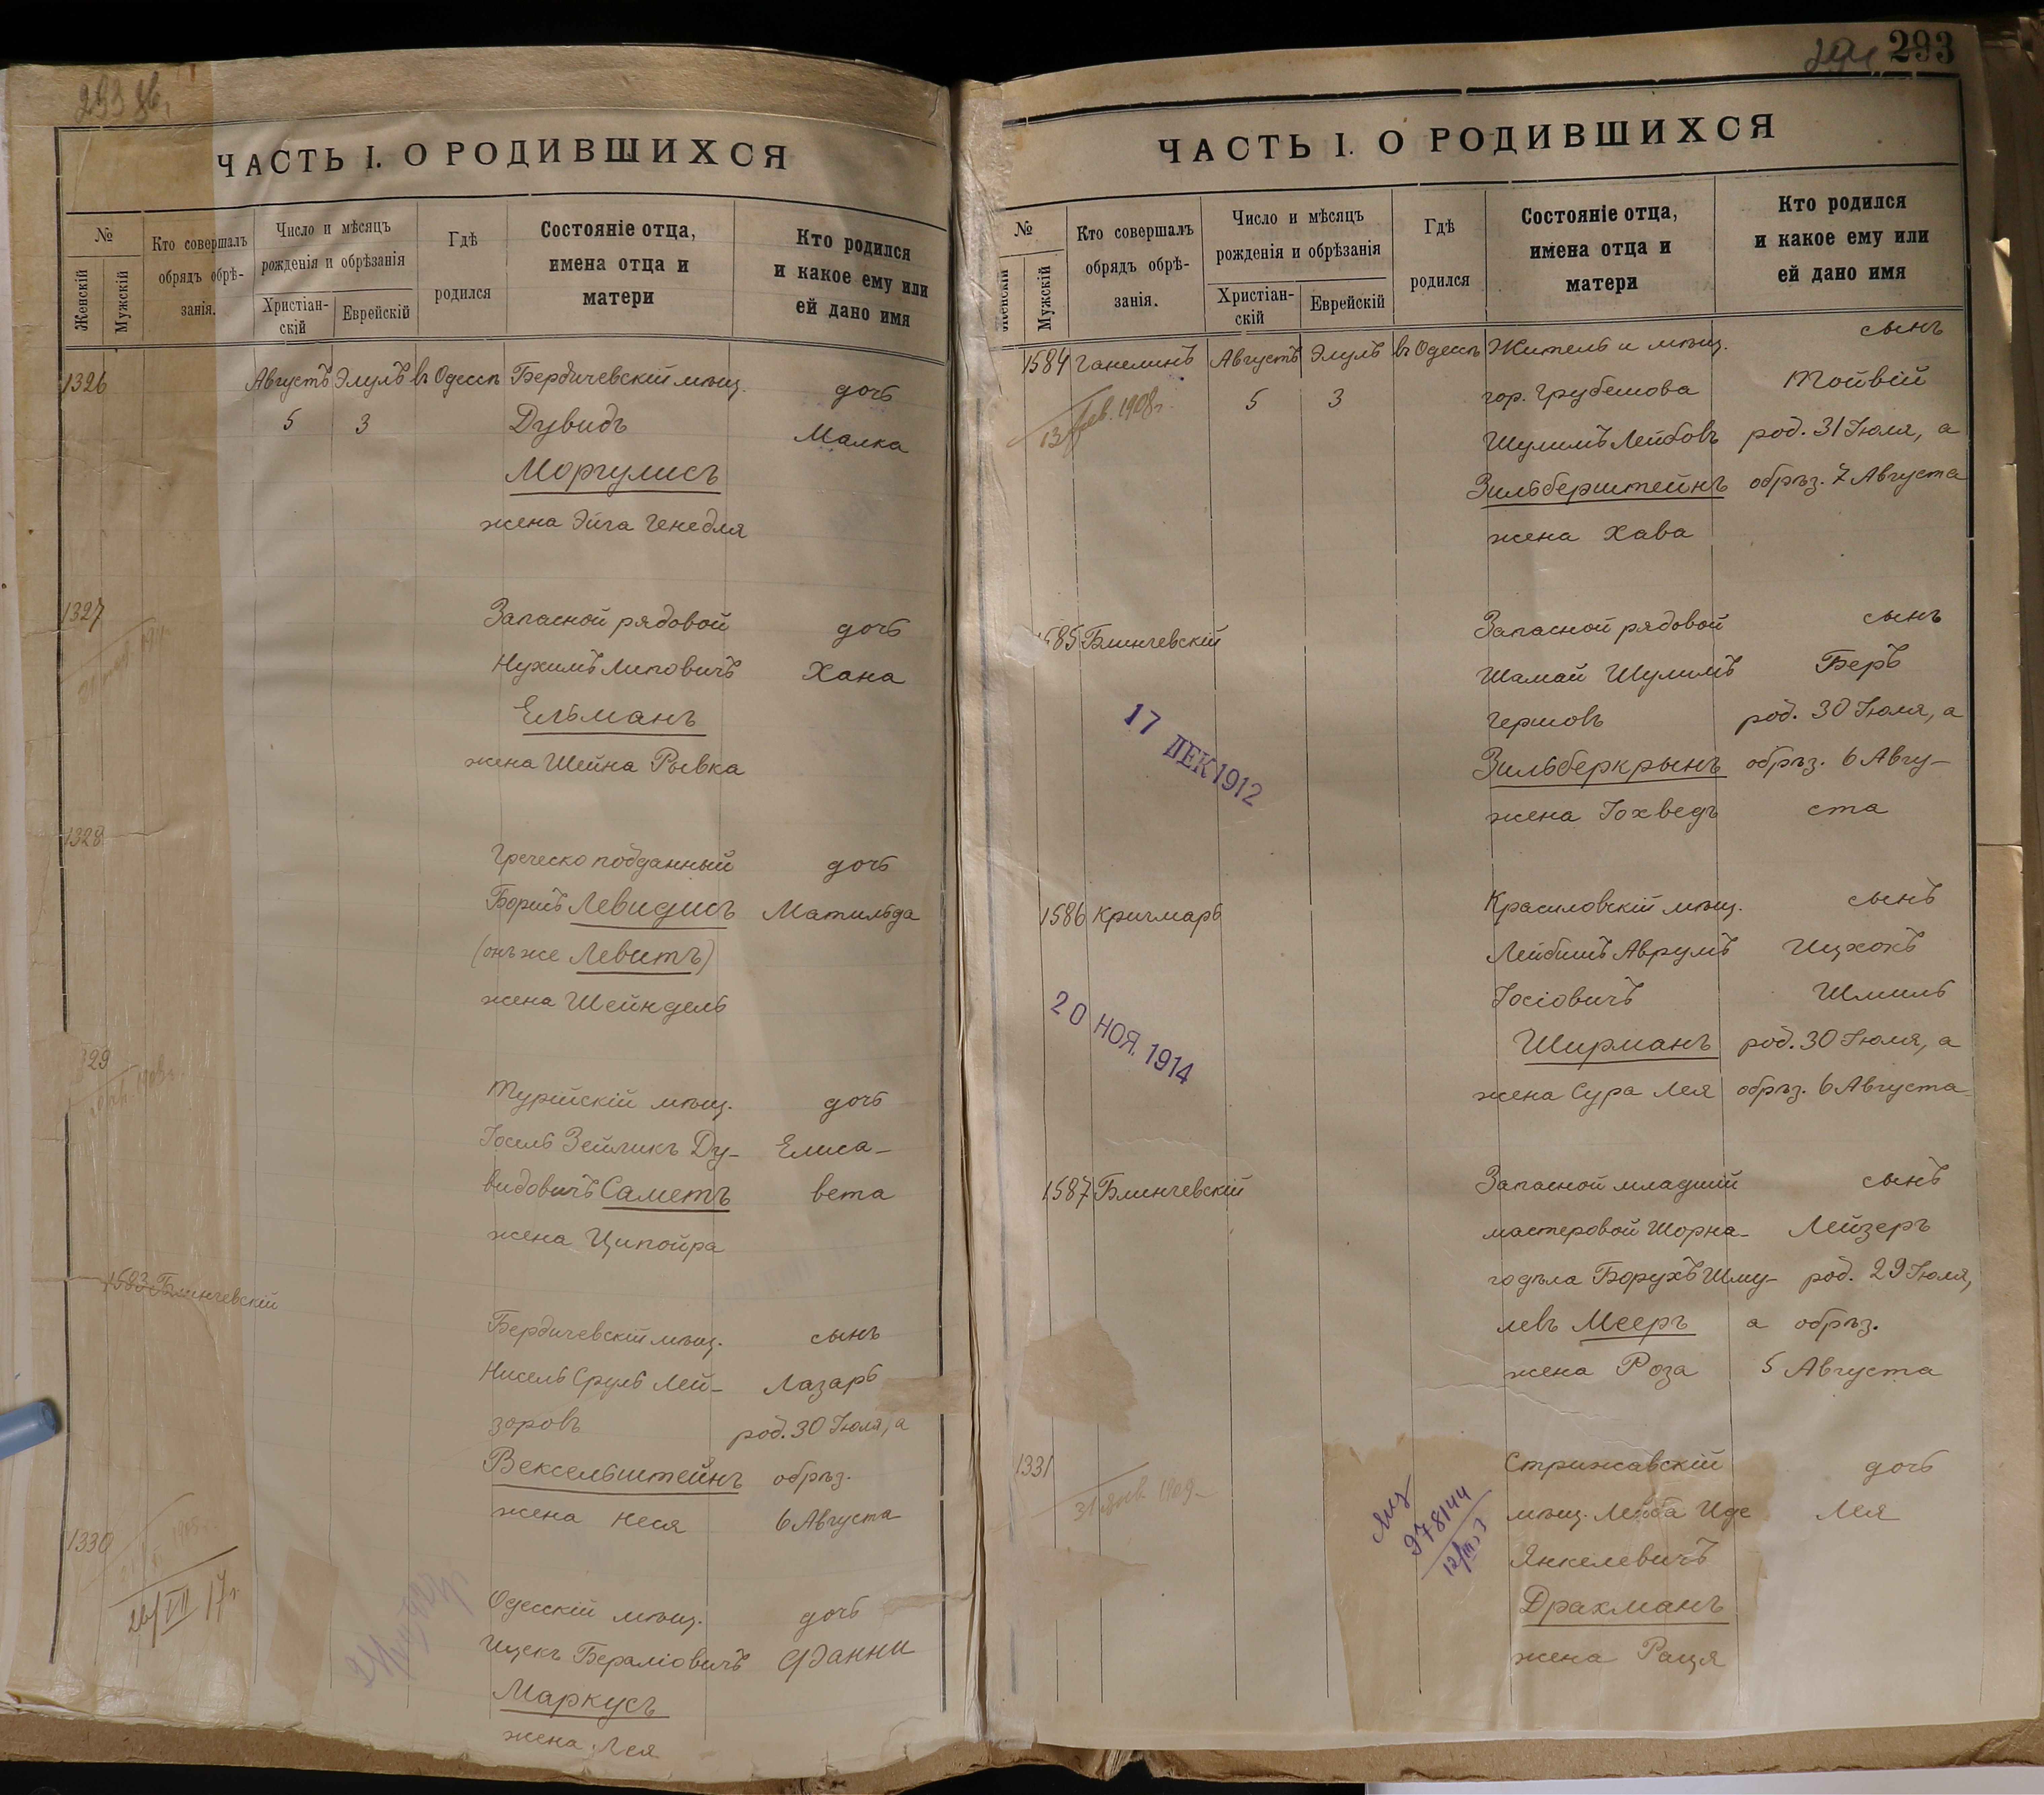 ЧАСТЬ I. О РОДИВШИХСЯ
№
Женскій
Мужскій
Кто совершалъ
обрядъ обрѣ-
занія.
Число и мѣсяцъ
рожденія и обрѣзанія
Христіан-
скій
Еврейскій
Гдѣ
родился
Состояніе отца,
имена отца и
матери
Кто родился
и какое ему или
ей дано имя
1326 Августъ Элулъ въ Одессѣ Бердичевскій мѣщ. дочь
5 3 Дувидъ Малка
Моргулисъ
жена Эйга Генедля
1327 Запасной рядовой дочь
Нухимъ Липовичъ Хана
Ельманъ
жена Шейна Рывка
1328 Греческо подданный дочь
Борисъ Левидисъ Матильда
(онъ же Левитъ)
жена Шейндель
329 Турійскій мѣщ. дочь
Іосель Зейликъ Ду- Елиса-
видовичъ Саметъ вета
жена Ципойра
1583 Блинчевскій Бердичевскій мѣщ. сынъ
Нисель Сруль Лей- Лазарь
зоровъ род. 30 Іюля, а
Вексельштейнъ обрѣз.
жена Неся 6 Августа
1330 Одесскій мѣщ. дочь
26/VII 17г.
Ицекъ Бераліовичъ Фанни
Маркусъ
жена Лея
293
ЧАСТЬ I. О РОДИВШИХСЯ
№
Женскій
Мужскій
Кто совершалъ
обрядъ обрѣ-
занія.
Число и мѣсяцъ
рожденія и обрѣзанія
Христіан-
скій
Еврейскій
Гдѣ
родился
Состояніе отца,
имена отца и
матери
Кто родился
и какое ему или
ей дано имя
1584 Ганелинъ Августъ Элулъ въ Одессѣ Житель и мѣщ. сынъ
13 фев. 1908г. 5 3 гор. Грубешова Тойвій
Шулимъ Лейбовъ род. 31 Іюля, а
Зильберштейнъ обрѣз. 7 Августа
жена Хава
585 Блинчевскій Запасной рядовой сынъ
Шамай Шулимъ Беръ
Гершовъ род. 30 Іюля, а
17 ДЕК 1912
Зильберкрынъ обрѣз. 6 Авгу-
жена Іохведъ ста
1586 Кричмарь Красиловскій мѣщ. сынъ
Лейбишъ Аврумъ Ицхокъ
Іосіовичъ Шмиль
20 НОЯ. 1914
Ширманъ род. 30 Іюля, а
жена Сура Лея обрѣз. 6 Августа
1587 Блинчевскій Запасной младшій сынъ
мастеровой Шорна- Лейзеръ
го дѣла Борухъ Шму- род. 29 Іюля,
левъ Мееръ а обрѣз.
жена Роза 5 Августа
1331 Стрижавскій дочь
31 янв. 1909
978144
мѣщ. Лейба Иде Лея
Янкелевичъ
Драхманъ
жена Раця